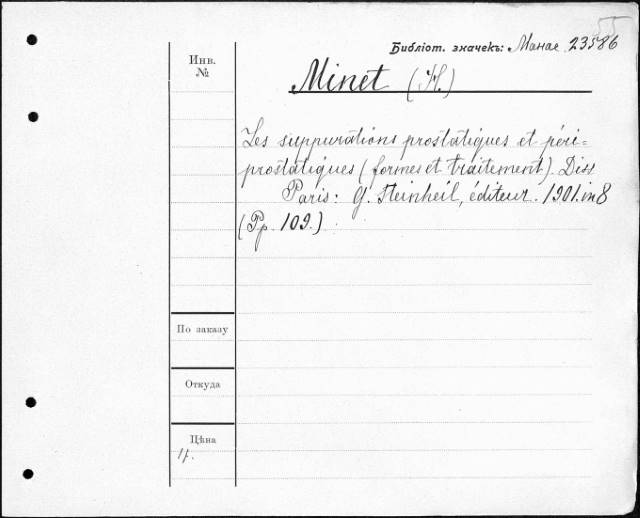 55
Библіот. значекъ: Манас 23586
Инв.
№
Minet (H.)
Les suppurations prostatiques et péri-
prostatiques (formes et traitement). Diss
Paris: G. Steinheil, éditeur. 1901. in 8
(Pp. 109.)
По заказу
Откуда
Цѣна
1 f.